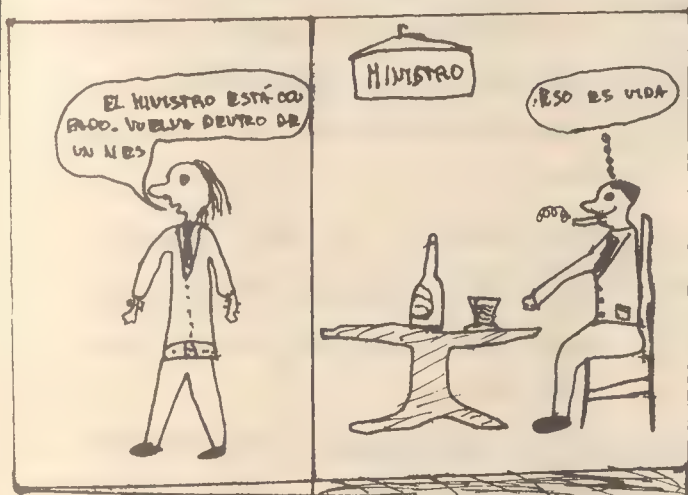 EL MINISTRO ESTÁ OCU
PADO. VUELVA DENTRO DE
UN MES
MINISTRO
ESO ES VIDA